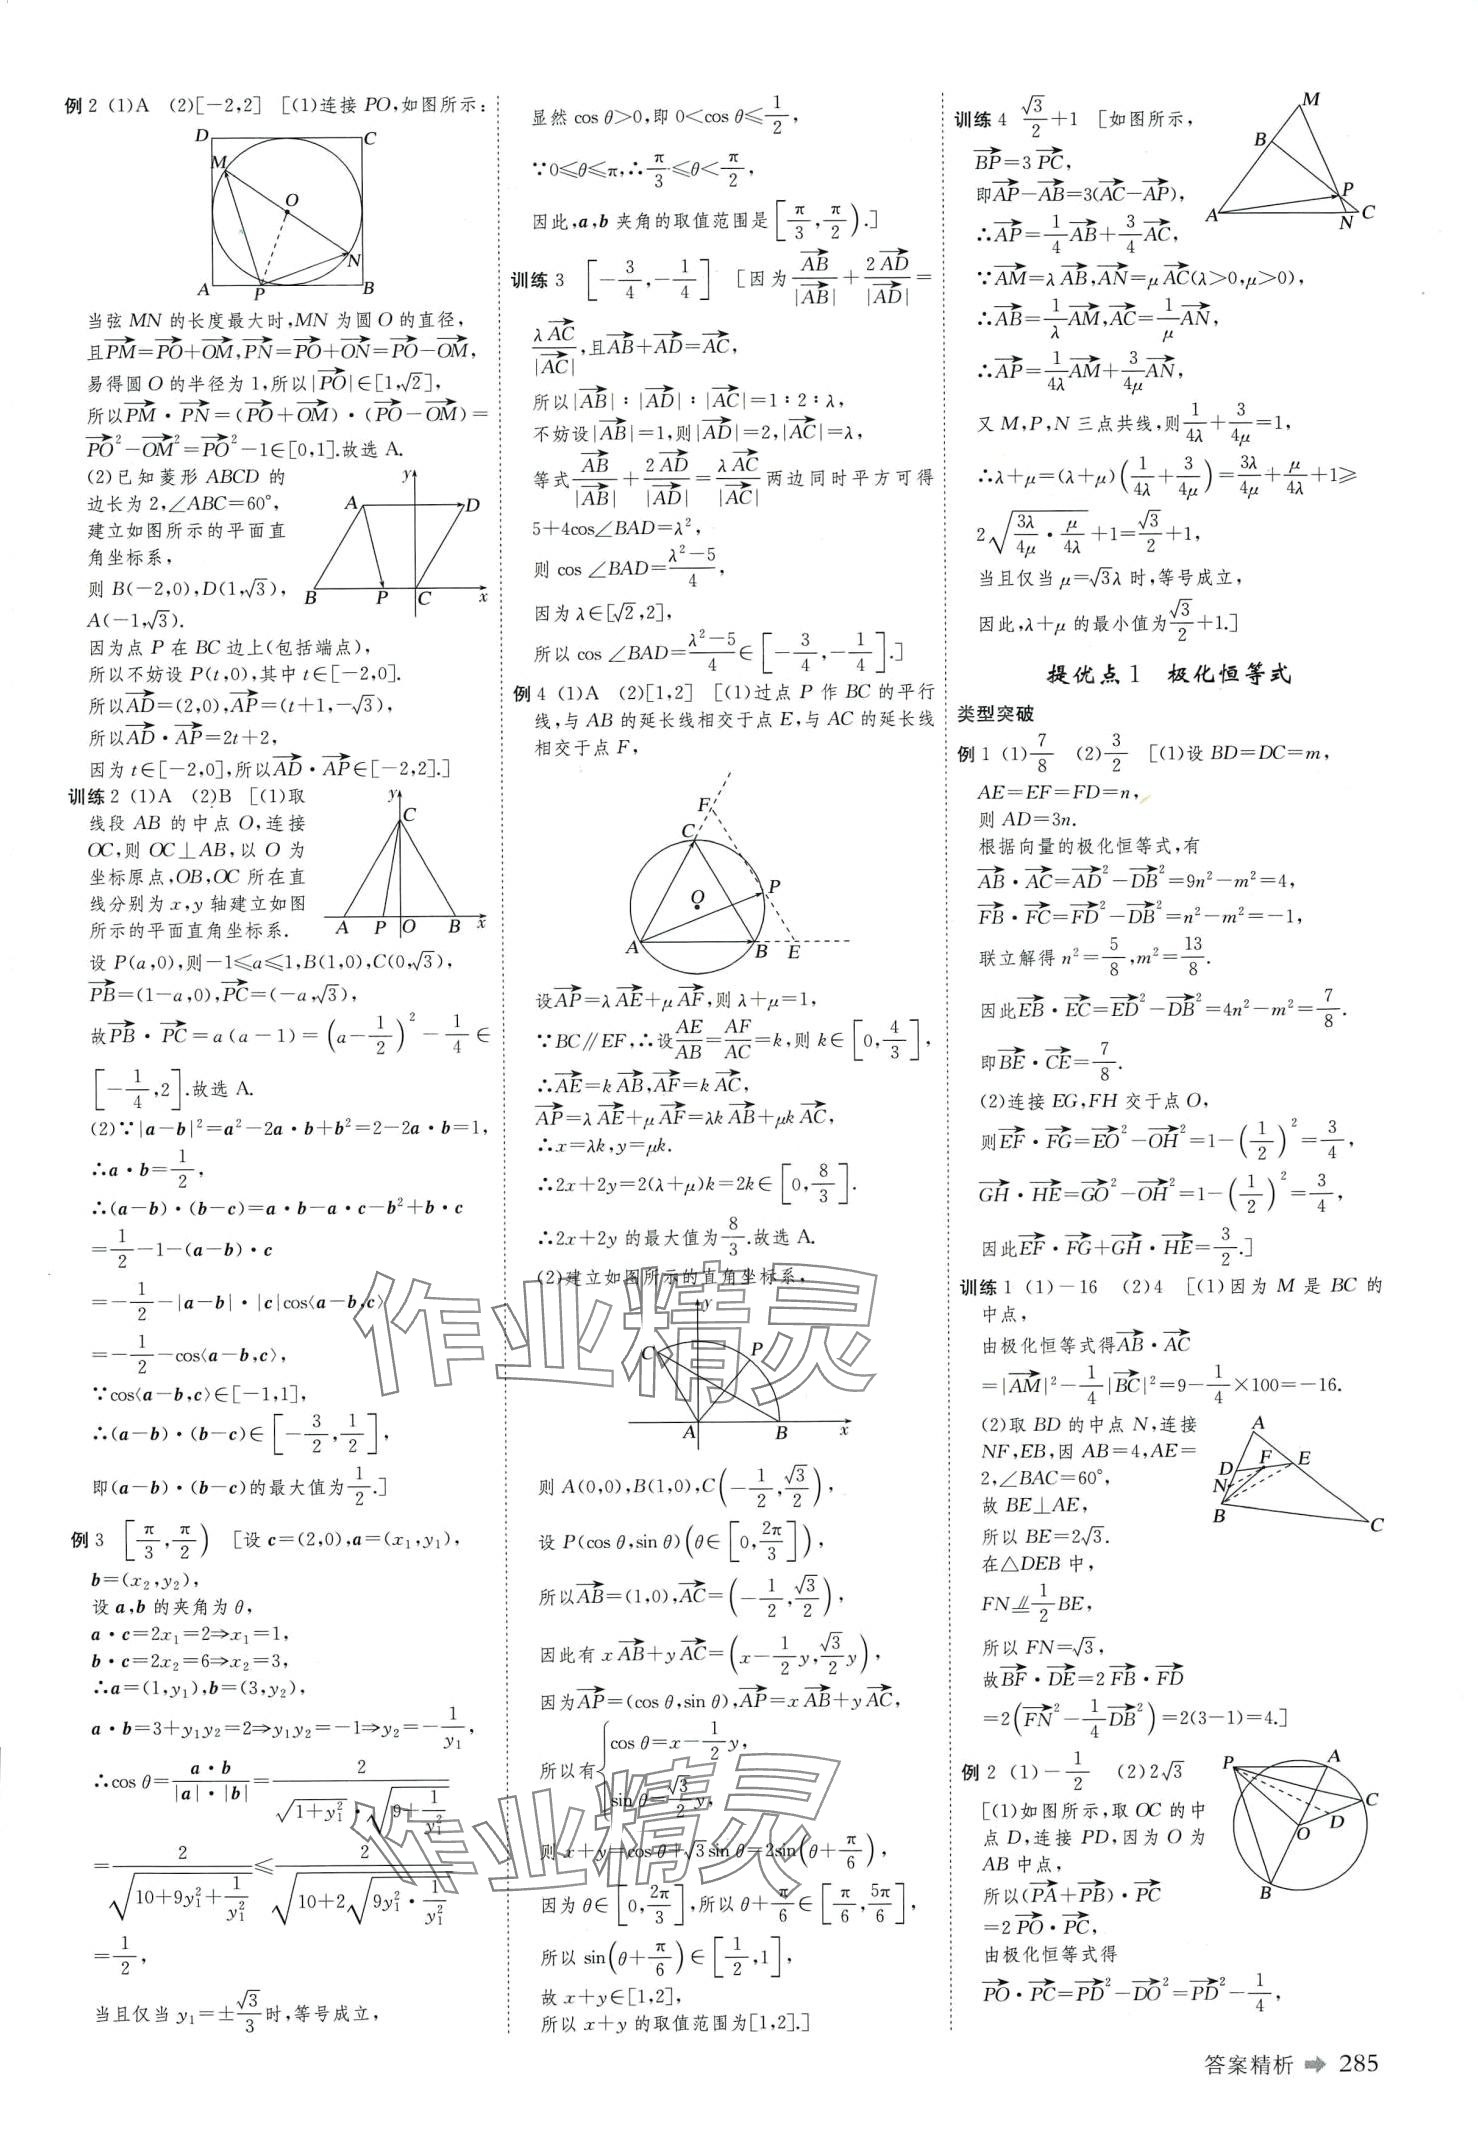 例2 (1)A (2)[−2,2] [(1)连接 PO,如图所示:
D C M O N A P B
当弦 MN 的长度最大时,MN 为圆 O 的直径,
且PM→=PO→+OM→,PN→=PO→+ON→=PO→−OM→,
易得圆 O 的半径为 1,所以|PO→|∈[1,√2],
所以PM→·PN→=(PO→+OM→)·(PO→−OM→)=
PO→²−OM→²=PO→²−1∈[0,1].故选 A.
(2)已知菱形 ABCD 的
边长为 2,∠ABC=60°,
建立如图所示的平面直
角坐标系,
则 B(−2,0),D(1,√3),
A(−1,√3).
y A D B P C x
因为点 P 在 BC 边上(包括端点),
所以不妨设 P(t,0),其中 t∈[−2,0].
所以AD→=(2,0),AP→=(t+1,−√3),
所以AD→·AP→=2t+2,
因为 t∈[−2,0],所以AD→·AP→∈[−2,2].]
训练2 (1)A (2)B [(1)取
线段 AB 的中点 O,连接
OC,则 OC⊥AB,以 O 为
坐标原点,OB,OC 所在直
线分别为 x,y 轴建立如图
所示的平面直角坐标系.
y C A P O B x
设 P(a,0),则−1≤a≤1,B(1,0),C(0,√3),
PB→=(1−a,0),PC→=(−a,√3),
故PB→·PC→=a(a−1)=(a−1/2)²−1/4∈
[−1/4,2].故选 A.
(2)∵|a−b|²=a²−2a·b+b²=2−2a·b=1,
∴a·b=1/2,
∴(a−b)·(b−c)=a·b−a·c−b²+b·c
=1/2−1−(a−b)·c
=−1/2−|a−b|·|c|cos⟨a−b,c⟩
=−1/2−cos⟨a−b,c⟩,
∵cos⟨a−b,c⟩∈[−1,1],
∴(a−b)·(b−c)∈[−3/2,1/2],
即(a−b)·(b−c)的最大值为1/2.]
例3 [π/3,π/2) [设 c=(2,0),a=(x₁,y₁),
b=(x₂,y₂),
设 a,b 的夹角为 θ,
a·c=2x₁=2⇒x₁=1,
b·c=2x₂=6⇒x₂=3,
∴a=(1,y₁),b=(3,y₂),
a·b=3+y₁y₂=2⇒y₁y₂=−1⇒y₂=−1/y₁,
∴cos θ=a·b/(|a|·|b|)=2/(√(1+y₁²)·√(9+1/y₁²))
=2/√(10+9y₁²+1/y₁²)≤2/√(10+2√(9y₁²·1/y₁²))
=1/2,
当且仅当 y₁=±√3/3时,等号成立,
显然 cos θ>0,即 0<cos θ≤1/2,
∵0≤θ≤π,∴π/3≤θ<π/2,
因此,a,b 夹角的取值范围是[π/3,π/2).]
训练3 [−3/4,−1/4] [因为AB→/|AB→|+2AD→/|AD→|=
λAC→/|AC→|,且AB→+AD→=AC→,
所以|AB→|:|AD→|:|AC→|=1:2:λ,
不妨设|AB→|=1,则|AD→|=2,|AC→|=λ,
等式AB→/|AB→|+2AD→/|AD→|=λAC→/|AC→|两边同时平方可得
5+4cos∠BAD=λ²,
则 cos ∠BAD=(λ²−5)/4,
因为 λ∈[√2,2],
所以 cos ∠BAD=(λ²−5)/4∈[−3/4,−1/4].]
例4 (1)A (2)[1,2] [(1)过点 P 作 BC 的平行
线,与 AB 的延长线相交于点 E,与 AC 的延长线
相交于点 F,
F C P O A B E
设AP→=λAE→+μAF→,则 λ+μ=1,
∵BC∥EF,∴设AE/AB=AF/AC=k,则 k∈[0,4/3],
∴AE→=kAB→,AF→=kAC→,
AP→=λAE→+μAF→=λkAB→+μkAC→,
∴x=λk,y=μk.
∴2x+2y=2(λ+μ)k=2k∈[0,8/3].
∴2x+2y 的最大值为8/3.故选 A.
(2)建立如图所示的直角坐标系,
y C P A B x
则 A(0,0),B(1,0),C(−1/2,√3/2),
设 P(cos θ,sin θ)(θ∈[0,2π/3]),
所以AB→=(1,0),AC→=(−1/2,√3/2),
因此有 xAB→+yAC→=(x−1/2y,√3/2y),
因为AP→=(cos θ,sin θ),AP→=xAB→+yAC→,
所以有{cos θ=x−1/2y,
sin θ=√3/2y,
则 x+y=cos θ+√3sin θ=2sin(θ+π/6),
因为 θ∈[0,2π/3],所以 θ+π/6∈[π/6,5π/6],
所以 sin(θ+π/6)∈[1/2,1],
故 x+y∈[1,2],
所以 x+y 的取值范围为[1,2].]
训练4 √3/2+1 [如图所示,
BP→=3PC→,
即AP→−AB→=3(AC→−AP→),
∴AP→=1/4AB→+3/4AC→,
M B P A N C
∵AM→=λAB→,AN→=μAC→(λ>0,μ>0),
∴AB→=1/λAM→,AC→=1/μAN→,
∴AP→=1/4λAM→+3/4μAN→,
又 M,P,N 三点共线,则1/4λ+3/4μ=1,
∴λ+μ=(λ+μ)(1/4λ+3/4μ)=3λ/4μ+μ/4λ+1≥
2√(3λ/4μ·μ/4λ)+1=√3/2+1,
当且仅当 μ=√3λ 时,等号成立,
因此,λ+μ 的最小值为√3/2+1.]
提优点1 极化恒等式
类型突破
例1 (1)7/8 (2)3/2 [(1)设 BD=DC=m,
AE=EF=FD=n,
则 AD=3n.
根据向量的极化恒等式,有
AB→·AC→=AD→²−DB→²=9n²−m²=4,
FB→·FC→=FD→²−DB→²=n²−m²=−1,
联立解得 n²=5/8,m²=13/8.
因此EB→·EC→=ED→²−DB→²=4n²−m²=7/8.
即BE→·CE→=7/8.
(2)连接 EG,FH 交于点 O,
则EF→·FG→=EO→²−OH→²=1−(1/2)²=3/4,
GH→·HE→=GO→²−OH→²=1−(1/2)²=3/4,
因此EF→·FG→+GH→·HE→=3/2.]
训练1 (1)−16 (2)4 [(1)因为 M 是 BC 的
中点,
由极化恒等式得AB→·AC→
=|AM→|²−1/4|BC→|²=9−1/4×100=−16.
(2)取 BD 的中点 N,连接
NF,EB,因 AB=4,AE=
2,∠BAC=60°,
故 BE⊥AE,
所以 BE=2√3.
在△DEB 中,
A F E D N B C
FN∥=1/2BE,
所以 FN=√3,
故BF→·DE→=2FB→·FD→
=2(FN→²−1/4DB→²)=2(3−1)=4.]
例2 (1)−1/2 (2)2√3
[(1)如图所示,取 OC 的中
点 D,连接 PD,因为 O 为
AB 中点,
所以(PA→+PB→)·PC→
=2PO→·PC→,
P A C D O B
由极化恒等式得
PO→·PC→=PD→²−DO→²=PD→²−1/4,
作业精灵
作业精灵
答案精析 ➡ 285